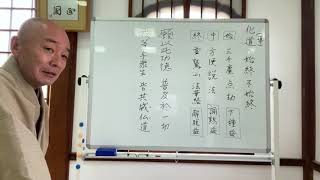 化道の始終不始終
始 三千塵点劫 下種益
中 方便説法 調熟益
終 霊鷲山 法華経 解脱益
願以此功徳 普及於一切
我等与衆生 皆共成仏道